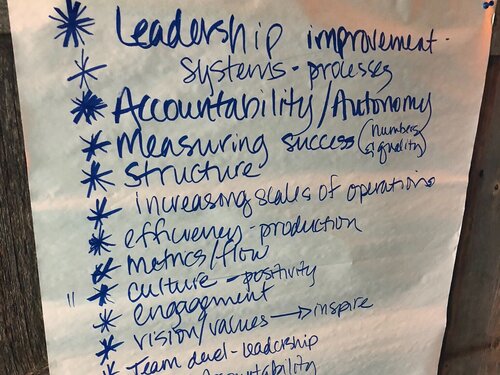 * Leadership improvement.
* systems - processes
* Accountability/Autonomy
* Measuring success (numbers & quality)
* structure
* increasing scales of operations
* efficiency - production
* metrics/flow
" * culture - positivity
* engagement
* vision/values → inspire
* Team devel - leadership
accountability